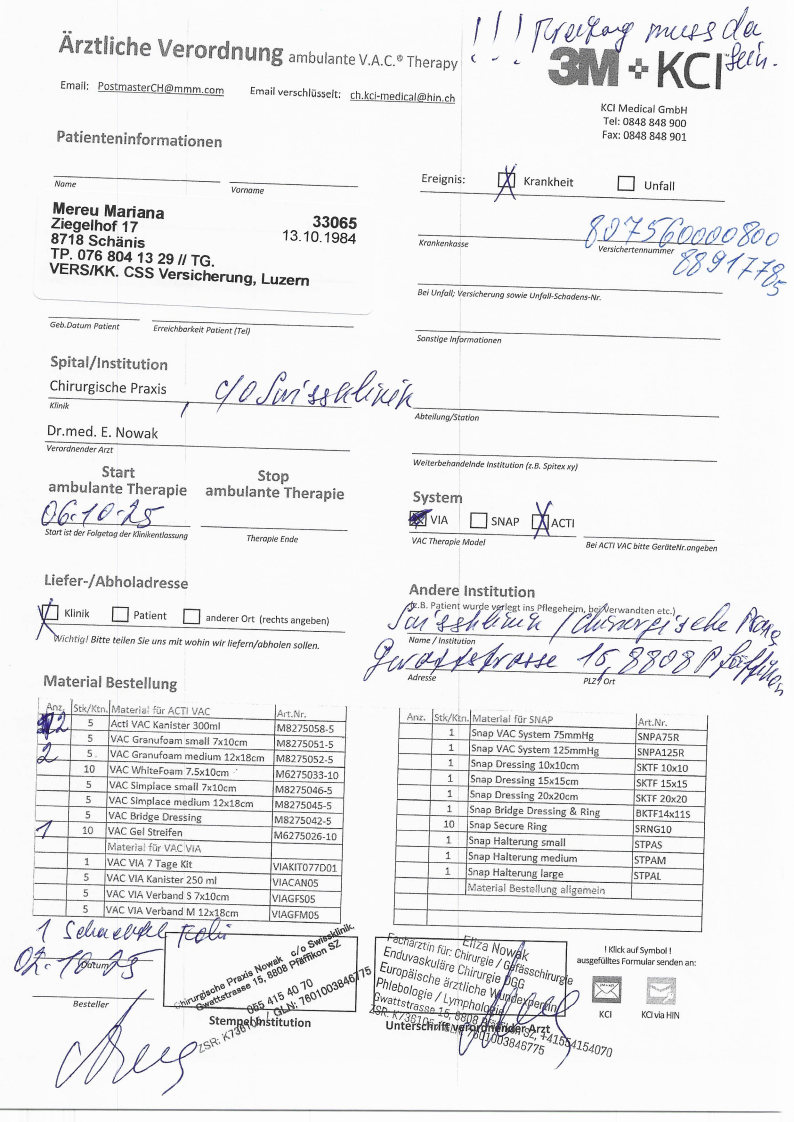 !!! Freitag muss da sein.
Ärztliche Verordnung ambulante V.A.C.® Therapy
3M + KCI
Email: PostmasterCH@mmm.com Email verschlüsselt: ch.kci-medical@hin.ch
KCI Medical GmbH
Tel: 0848 848 900
Fax: 0848 848 901
Patienteninformationen
Name Vorname
Mereu Mariana 33065
Ziegelhof 17 13.10.1984
8718 Schänis
TP. 076 804 13 29 // TG.
VERS/KK. CSS Versicherung, Luzern
Geb.Datum Patient Erreichbarkeit Patient (Tel)
Ereignis: X Krankheit Unfall
807560000800
Krankenkasse Versichertennummer
88917785
Bei Unfall; Versicherung sowie Unfall-Schadens-Nr.
Sonstige Informationen
Spital/Institution
Chirurgische Praxis, c/o Swissklinik
Klinik
Abteilung/Station
Dr.med. E. Nowak
Verordnender Arzt
Weiterbehandelnde Institution (z.B. Spitex xy)
Start ambulante Therapie
Stop ambulante Therapie
06.10.25
Start ist der Folgetag der Klinikentlassung Therapie Ende
System
VIA SNAP X ACTI
VAC Therapie Model Bei ACTI VAC bitte GeräteNr.angeben
Liefer-/Abholadresse
X Klinik Patient anderer Ort (rechts angeben)
Wichtig! Bitte teilen Sie uns mit wohin wir liefern/abholen sollen.
Andere Institution
(z.B. Patient wurde verlegt ins Pflegeheim, bei Verwandten etc.)
Swissklinik / Chirurgische Praxis
Name / Institution
Gwattstrasse 15, 8808 Pfäffikon
Adresse PLZ / Ort
Material Bestellung
Anz. Stk/Ktn. Material für ACTI VAC Art.Nr.
2 5 Acti VAC Kanister 300ml M8275058-5
5 VAC Granufoam small 7x10cm M8275051-5
2 5 VAC Granufoam medium 12x18cm M8275052-5
10 VAC WhiteFoam 7.5x10cm M6275033-10
5 VAC Simplace small 7x10cm M8275046-5
5 VAC Simplace medium 12x18cm M8275045-5
5 VAC Bridge Dressing M8275042-5
1 10 VAC Gel Streifen M6275026-10
Material für VAC VIA
1 VAC VIA 7 Tage Kit VIAKIT077D01
5 VAC VIA Kanister 250 ml VIACAN05
5 VAC VIA Verband S 7x10cm VIAGFS05
5 VAC VIA Verband M 12x18cm VIAGFM05
Anz. Stk/Ktn. Material für SNAP Art.Nr.
1 Snap VAC System 75mmHg SNPA75R
1 Snap VAC System 125mmHg SNPA125R
1 Snap Dressing 10x10cm SKTF 10x10
1 Snap Dressing 15x15cm SKTF 15x15
1 Snap Dressing 20x20cm SKTF 20x20
1 Snap Bridge Dressing & Ring BKTF14x11S
10 Snap Secure Ring SRNG10
1 Snap Halterung small STPAS
1 Snap Halterung medium STPAM
1 Snap Halterung large STPAL
Material Bestellung allgemein
02.10.25
Datum
Besteller
Chirurgische Praxis Nowak c/o Swissklinik
Gwattstrasse 15, 8808 Pfäffikon SZ
055 415 40 70
ZSR: K736106 / GLN: 7601003846775
Stempel Institution
Eliza Nowak
Fachärztin für: Chirurgie / Gefässchirurgie
Endovaskuläre Chirurgie DGG
Europäische ärztliche Wundexpertin
Phlebologie / Lymphologie
Gwattstrasse 15, 8808 Pfäffikon SZ, +41554154070
7601003846775
Unterschrift verordnender Arzt
! Klick auf Symbol !
ausgefülltes Formular senden an:
KCI KCI via HIN